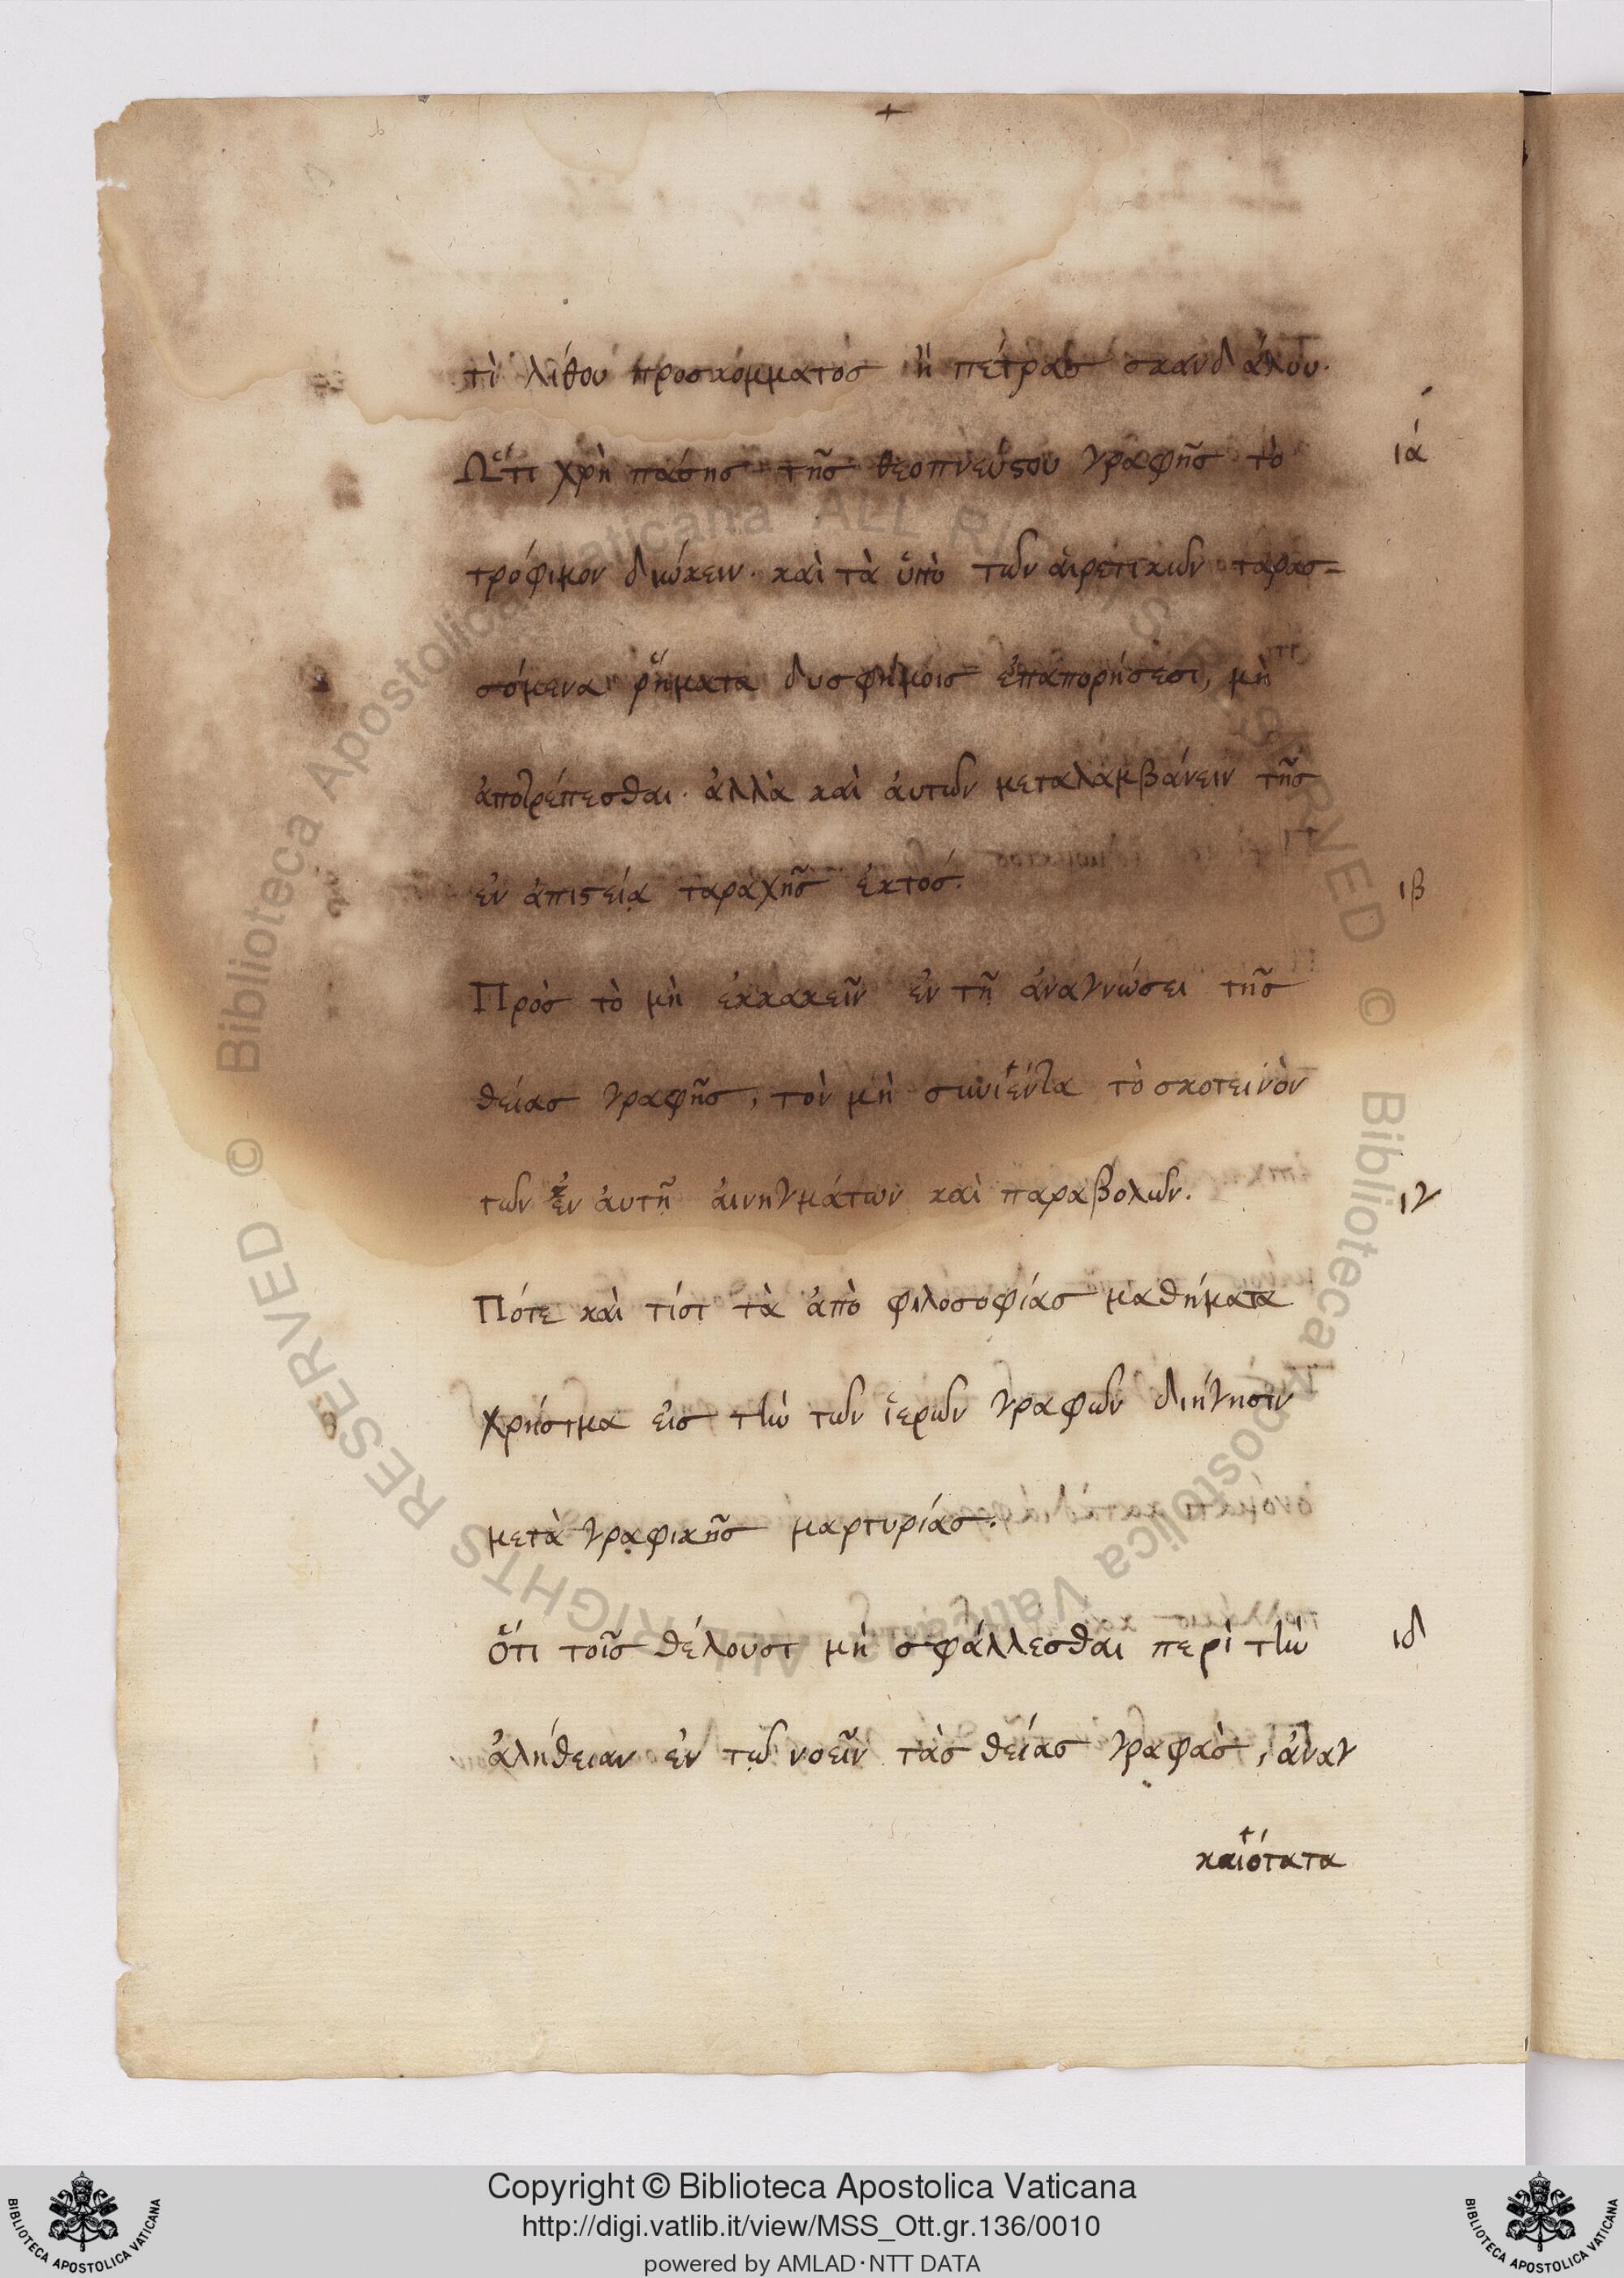 +
τὶ λίθου προσκόμματος ἢ πέτρας σκανδάλου.
Ὥτι χρὴ πάσης τῆς θεοπνεύστου γραφῆς τὸ ιά
τρόφιμον διώκειν. καὶ τὰ ὑπὸ τῶν αἱρετικῶν ταρασ=
σόμενα ῥήματα δυσφήμοις ἐπαπορήσεσι, μὴ
ἀποτρέπεσθαι. ἀλλὰ καὶ ἀυτῶν μεταλαμβάνειν τῆς
ἐν ἀπιστείᾳ ταραχῆς ἐκτός. ιβ
Πρὸς τὸ μὴ ἐκκακεῖν ἐν τῇ ἀναγνώσει τῆς
θείας γραφῆς, τὸν μὴ συνιέντα τὸ σκοτεινὸν
τῶν ἐν ἀυτῇ ἀινηγμάτων καὶ παραβολῶν. ιγ
Πότε καὶ τίσι τὰ ἀπὸ φιλοσοφίας μαθήματα
χρήσιμα εἰς τὴν τῶν ἱερῶν γραφῶν διήγησιν
μετὰ γραφικῆς μαρτυρίας.
Ὅτι τοῖς θέλουσι μὴ σφάλλεσθαι περὶ τὴν ιδ
ἀλήθειαν ἐν τῷ νοεῖν τὰς θείας γραφὰς, ἀναγ
καιότατα
Copyright © Biblioteca Apostolica Vaticana
http://digi.vatlib.it/view/MSS_Ott.gr.136/0010
powered by AMLAD·NTT DATA
BIBLIOTECA APOSTOLICA VATICANA
BIBLIOTECA APOSTOLICA VATICANA
© Biblioteca Apostolica Vaticana ALL RIGHTS RESERVED © Biblioteca Apostolica Vaticana ALL RIGHTS RESERVED